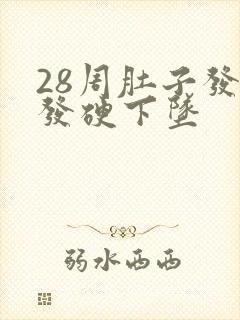 28周肚子發
發硬下墜
弱水西西